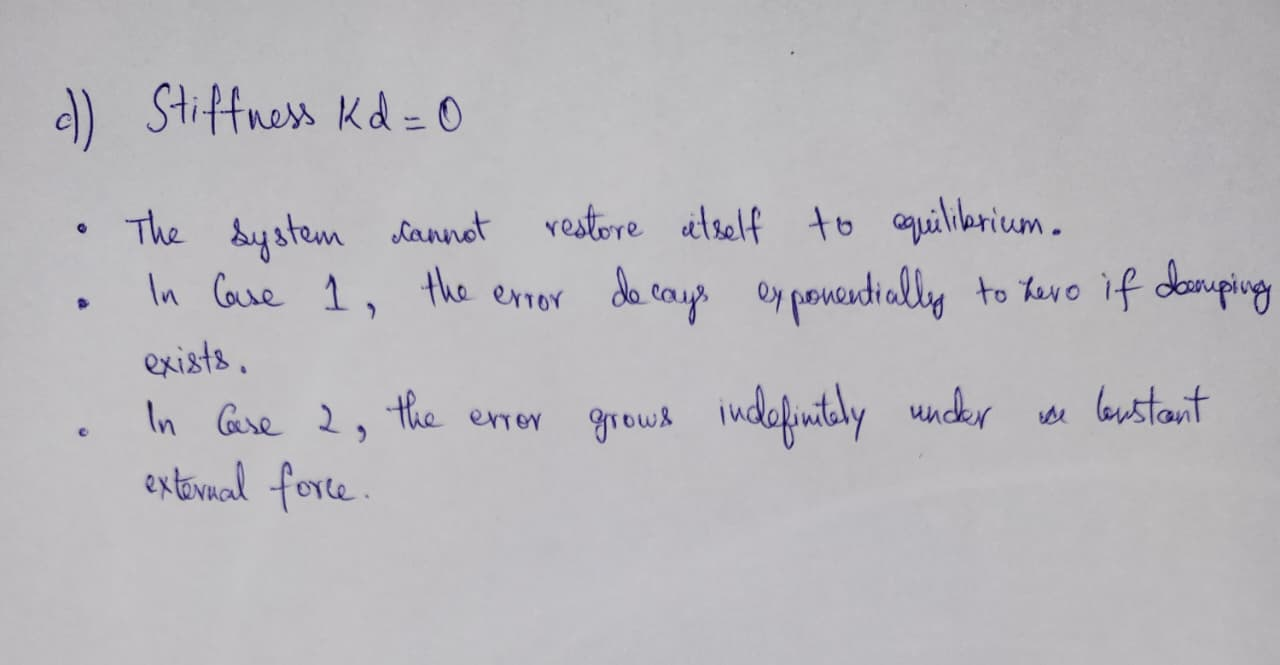 d) Stiffness Kd = 0
• The system cannot restore itself to equilibrium.
• In Case 1, the error decays exponentially to zero if damping
exists.
• In Case 2, the error grows indefinitely under constant
external force.